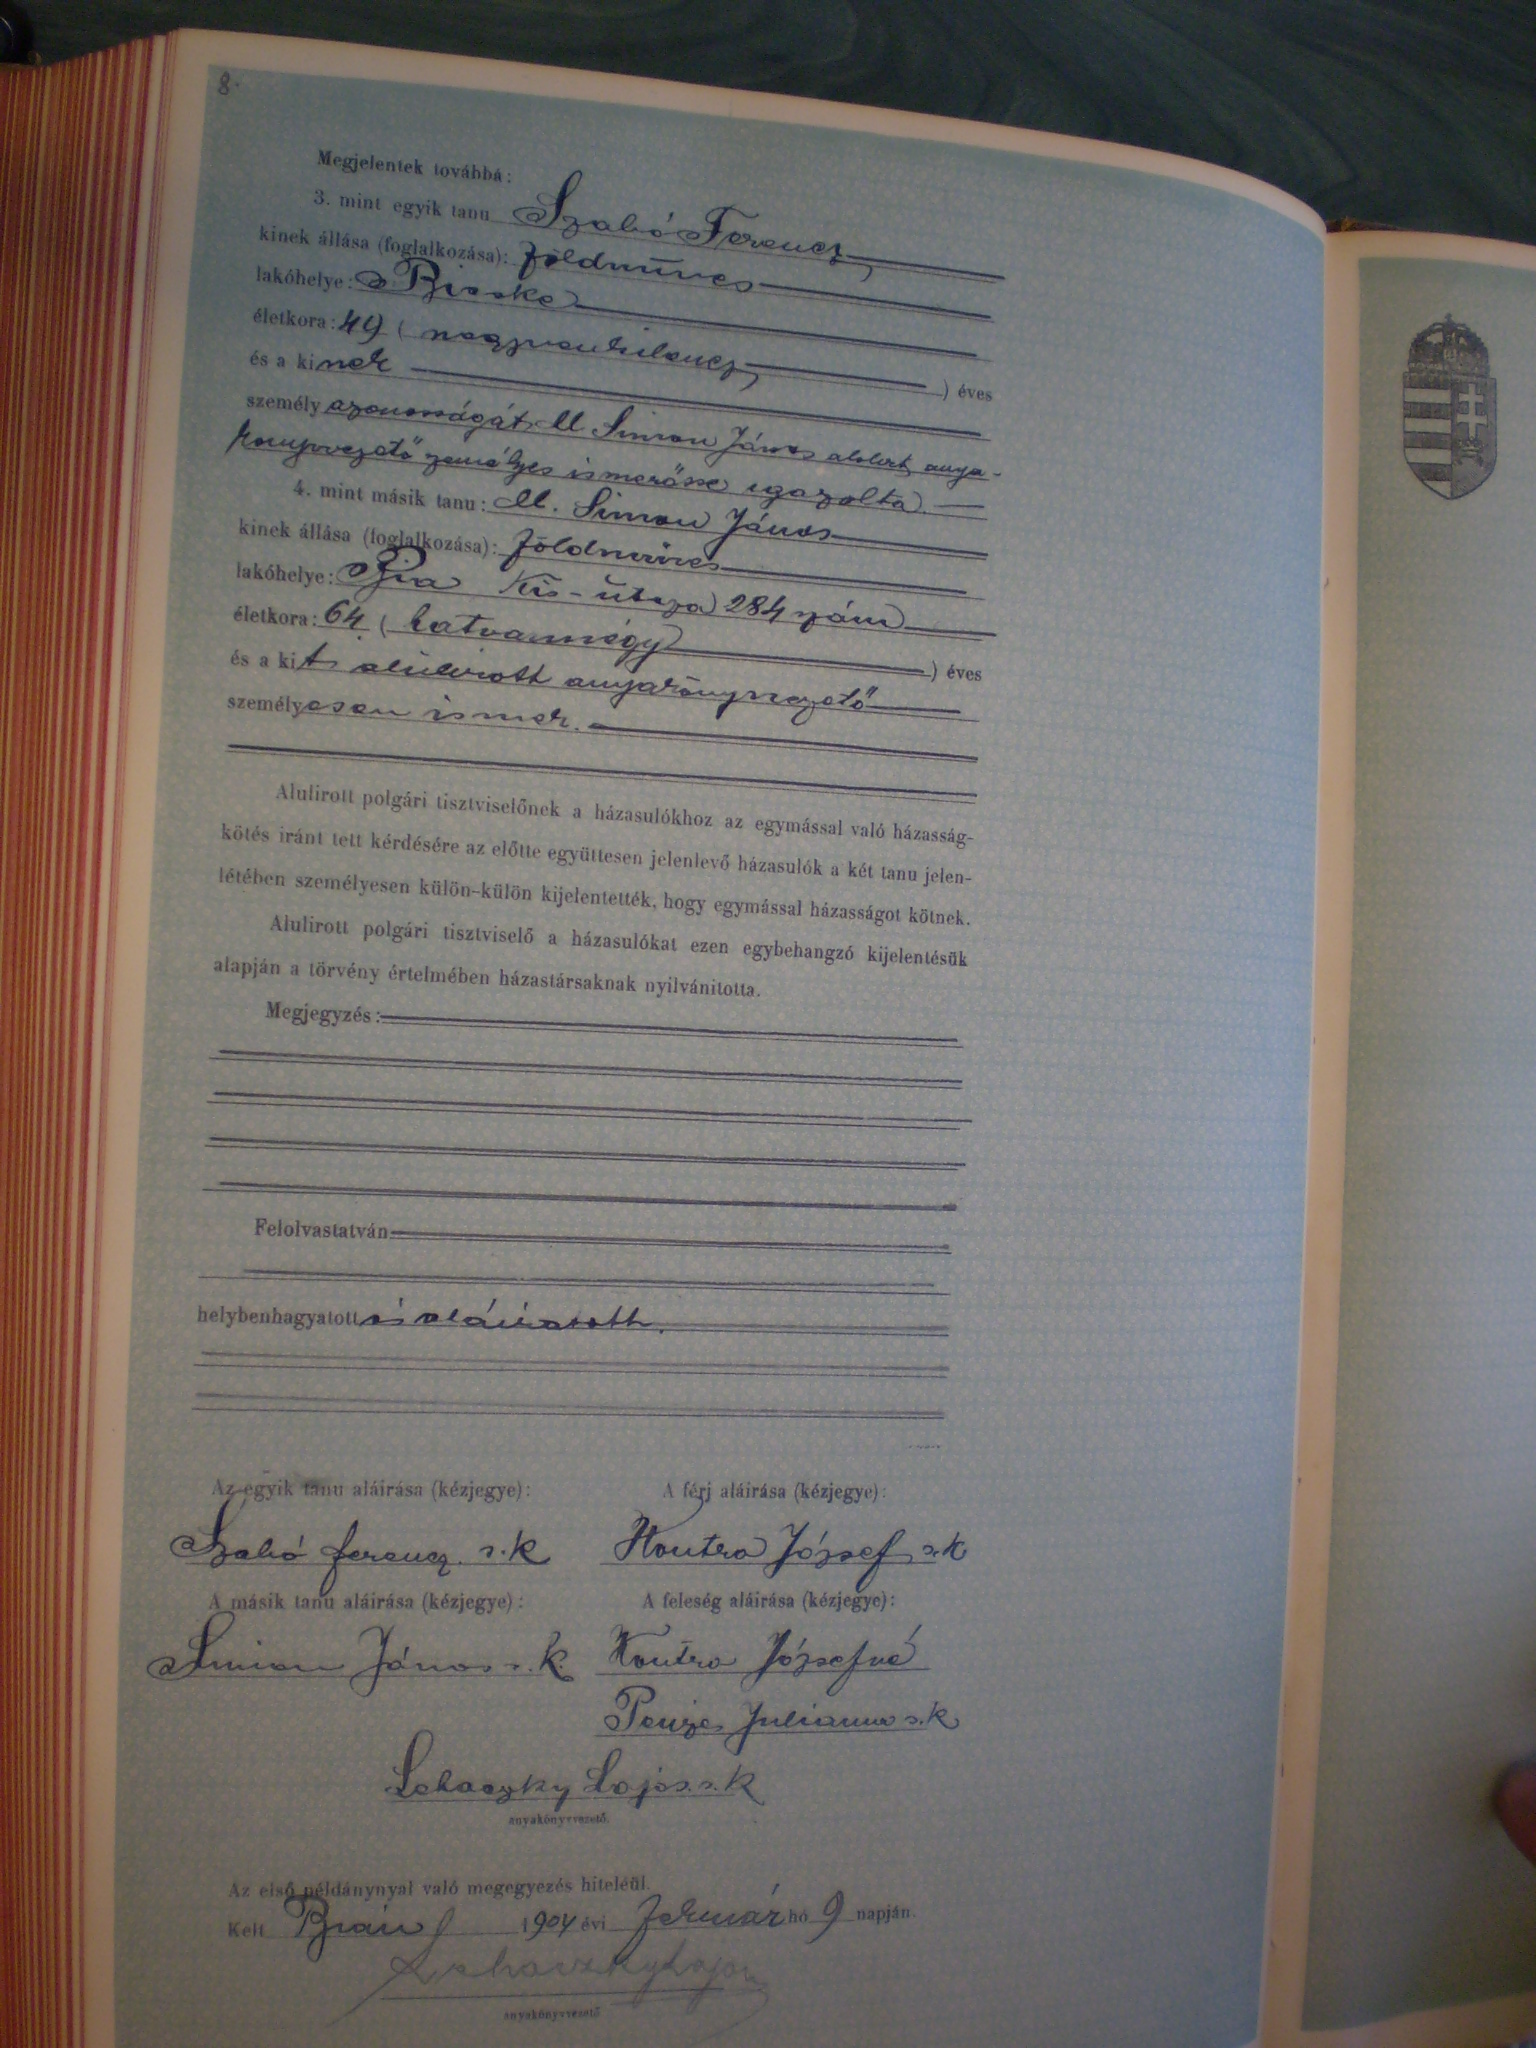 8.
Megjelentek továbbá:
3. mint egyik tanu Szabó Ferencz
kinek állása (foglalkozása): földmüves
lakóhelye: Bicske
életkora: 49 ( negyvenkilencz ) éves
és a kinek
személyazonosságát M. Simon János alulirt anya-
könyvvezető személyes ismerőse igazolta.
4. mint másik tanu: M. Simon János
kinek állása (foglalkozása): földmüves
lakóhelye: Bia Kis-utcza 284 szám
életkora: 64 ( hatvannégy ) éves
és a kit alulirott anyakönyvvezető
személyesen ismer.
Alulirott polgári tisztviselőnek a házasulókhoz az egymással való házasság-
kötés iránt tett kérdésére az előtte együttesen jelenlevő házasulók a két tanu jelen-
létében személyesen külön-külön kijelentették, hogy egymással házasságot kötnek.
Alulirott polgári tisztviselő a házasulókat ezen egybehangzó kijelentésük
alapján a törvény értelmében házastársaknak nyilvánitotta.
Megjegyzés:
Felolvastatván
helybenhagyatott és aláiratott.
Az egyik tanu aláirása (kézjegye): A férj aláirása (kézjegye):
Szabó Ferencz s.k Kontra József s.k
A másik tanu aláirása (kézjegye): A feleség aláirása (kézjegye):
Simon János s.k. Kontra Józsefné
Penzes Julianna s.k
Lehaczky Lajos s.k
anyakönyvvezető.
Az első példánynyal való megegyezés hiteléül.
Kelt Bián 1904 évi Február hó 9 napján.
Lehaczky Lajos
anyakönyvvezető